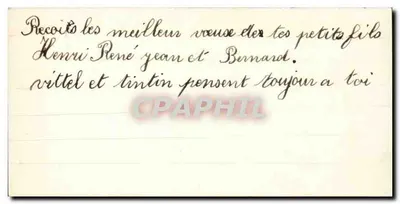 Recoits les meilleur vœux de tes petits fils
Henri René jean et Bernard.
vittel et tintin pensent toujour a toi
CPAPHIL